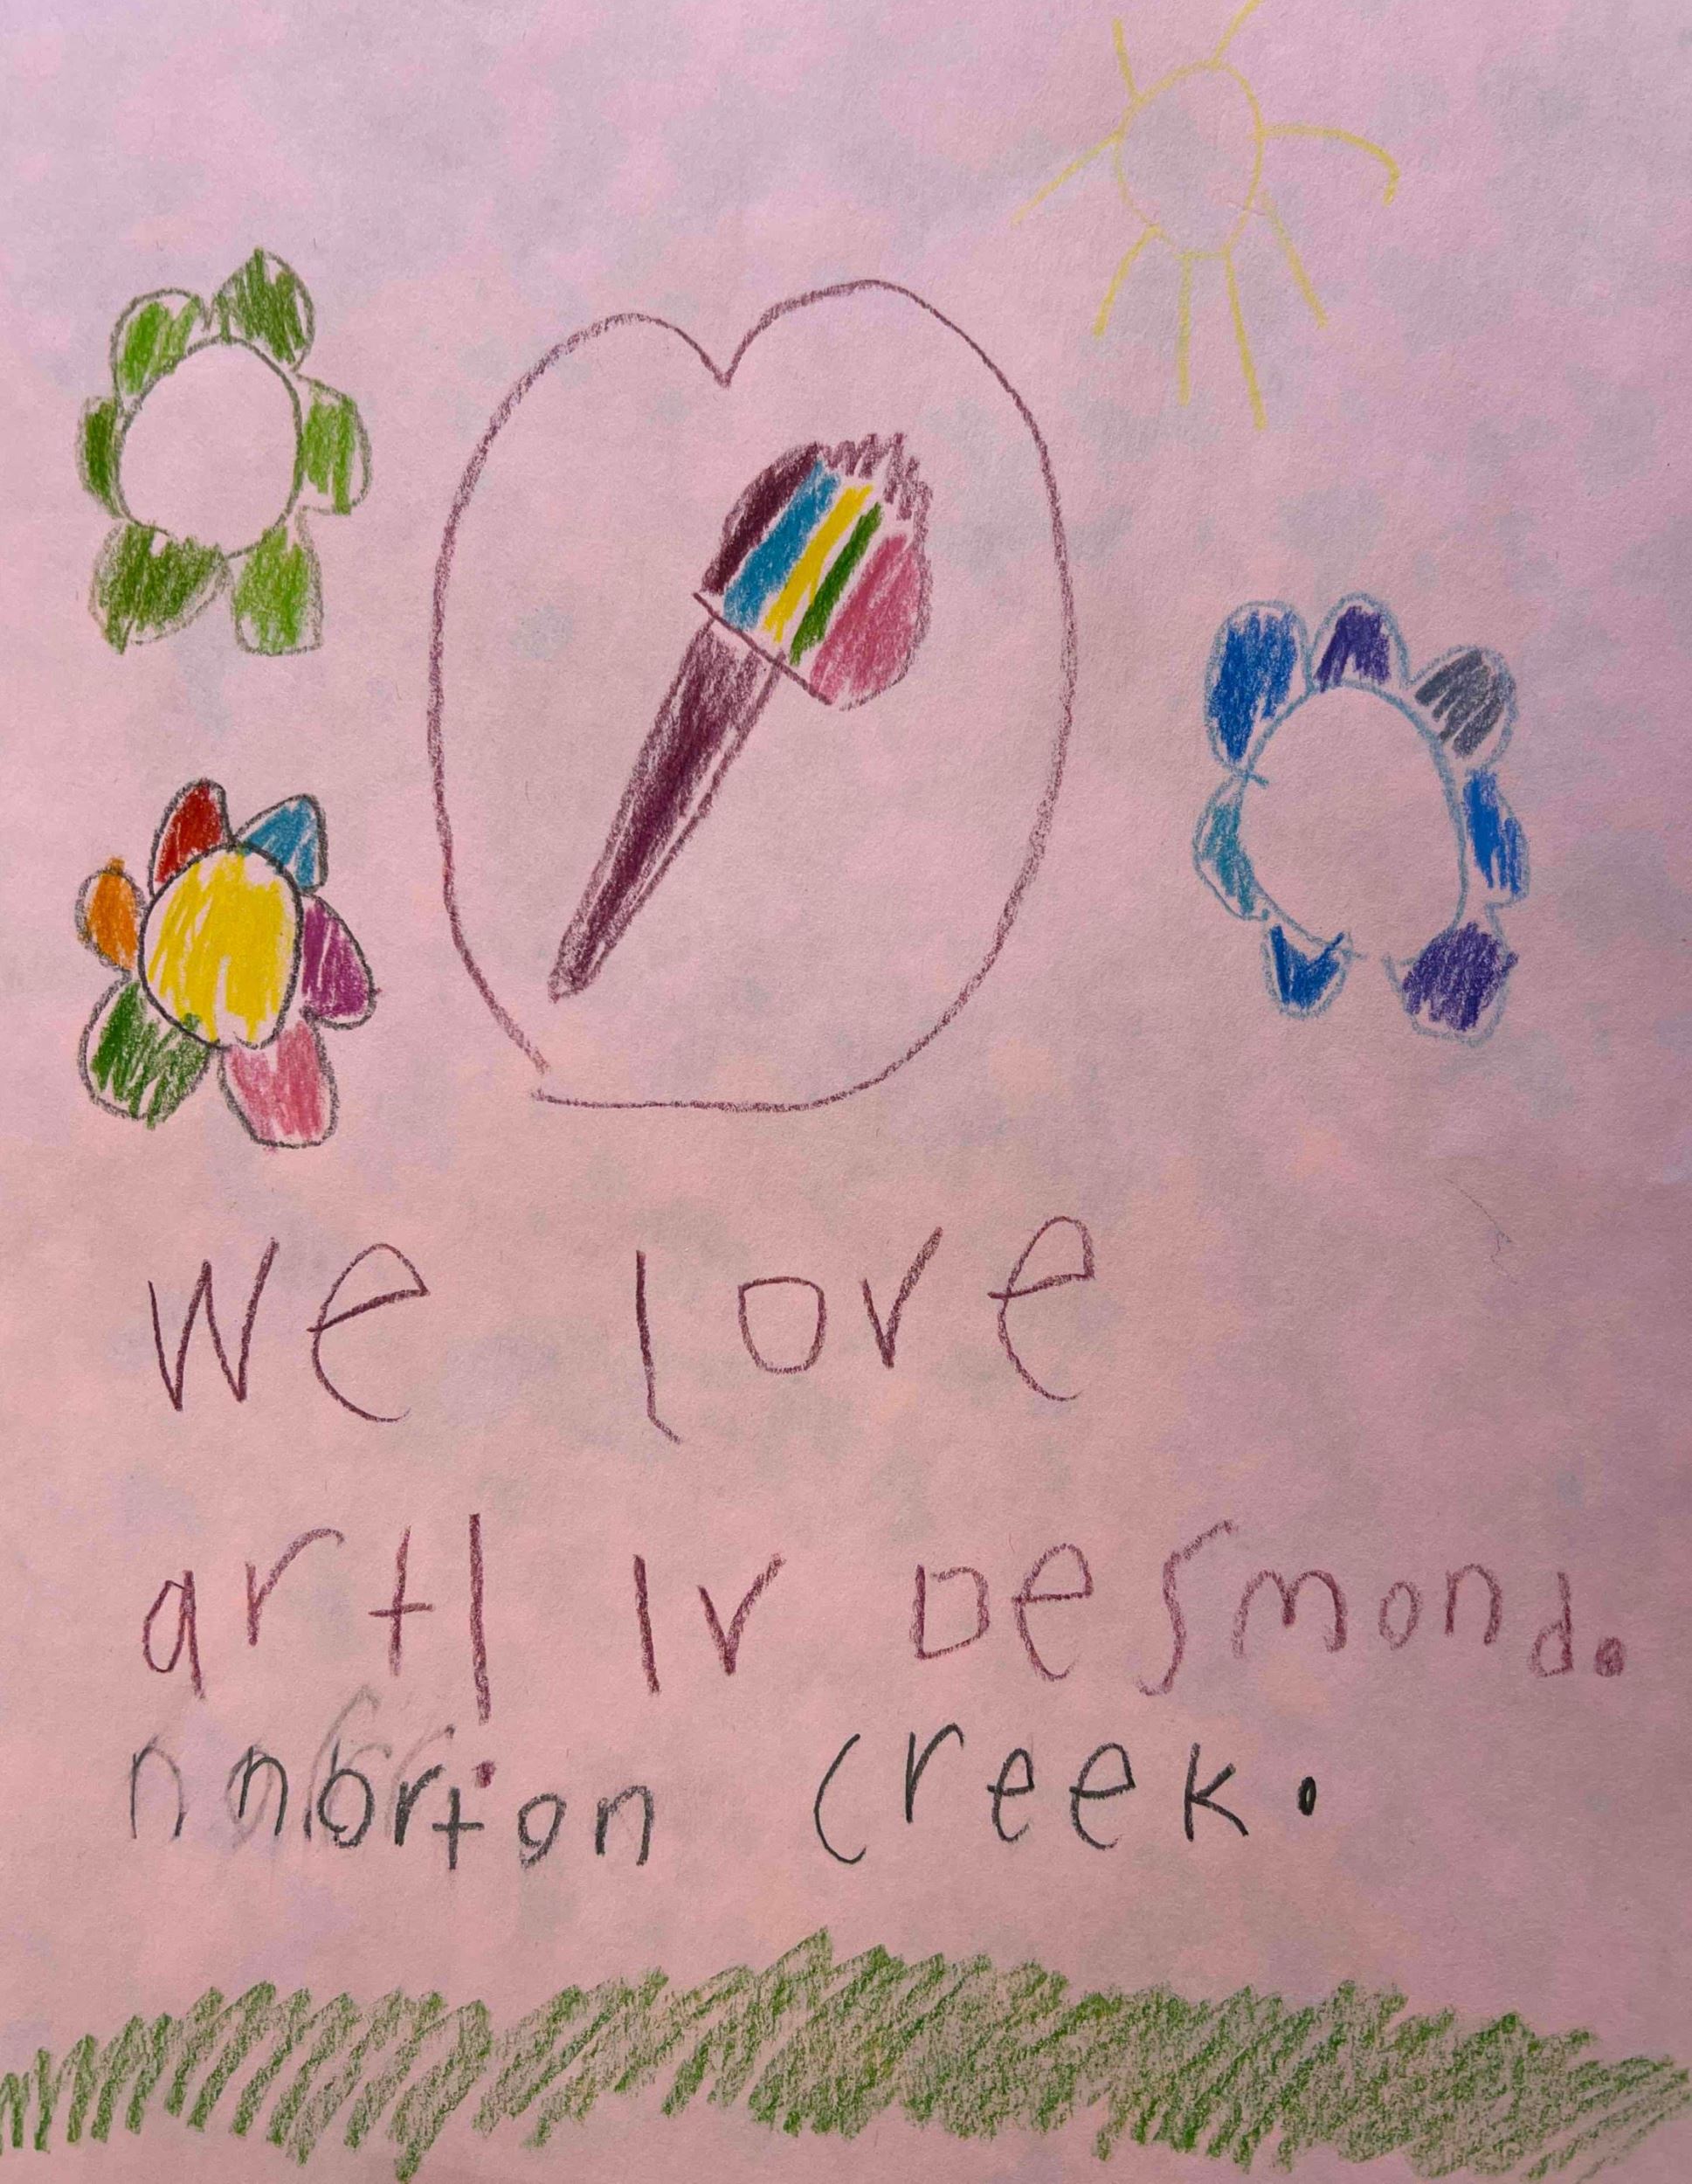 we love
art! lv Desmond.
norton creek.